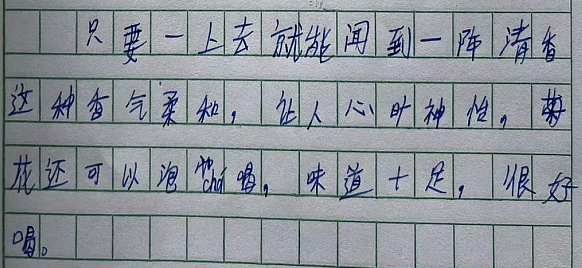 只要一上去就能闻到一阵清香
这种香气柔和，让人心旷神怡，菊
花还可以泡chá喝，味道十足，很好
喝。